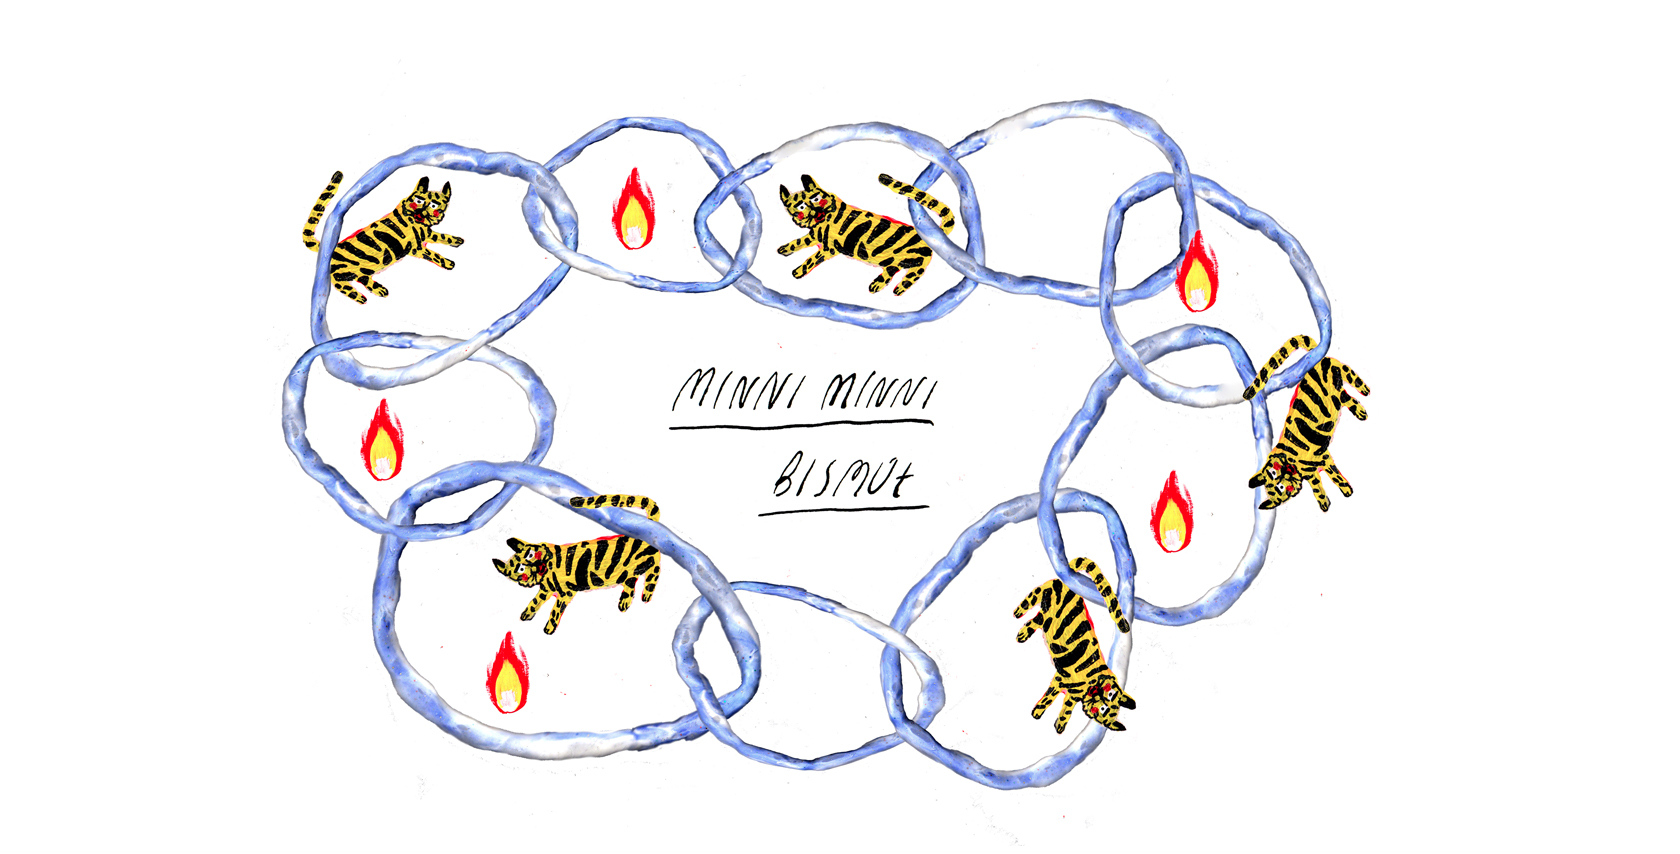 MINNI MINNI
BISMÚt